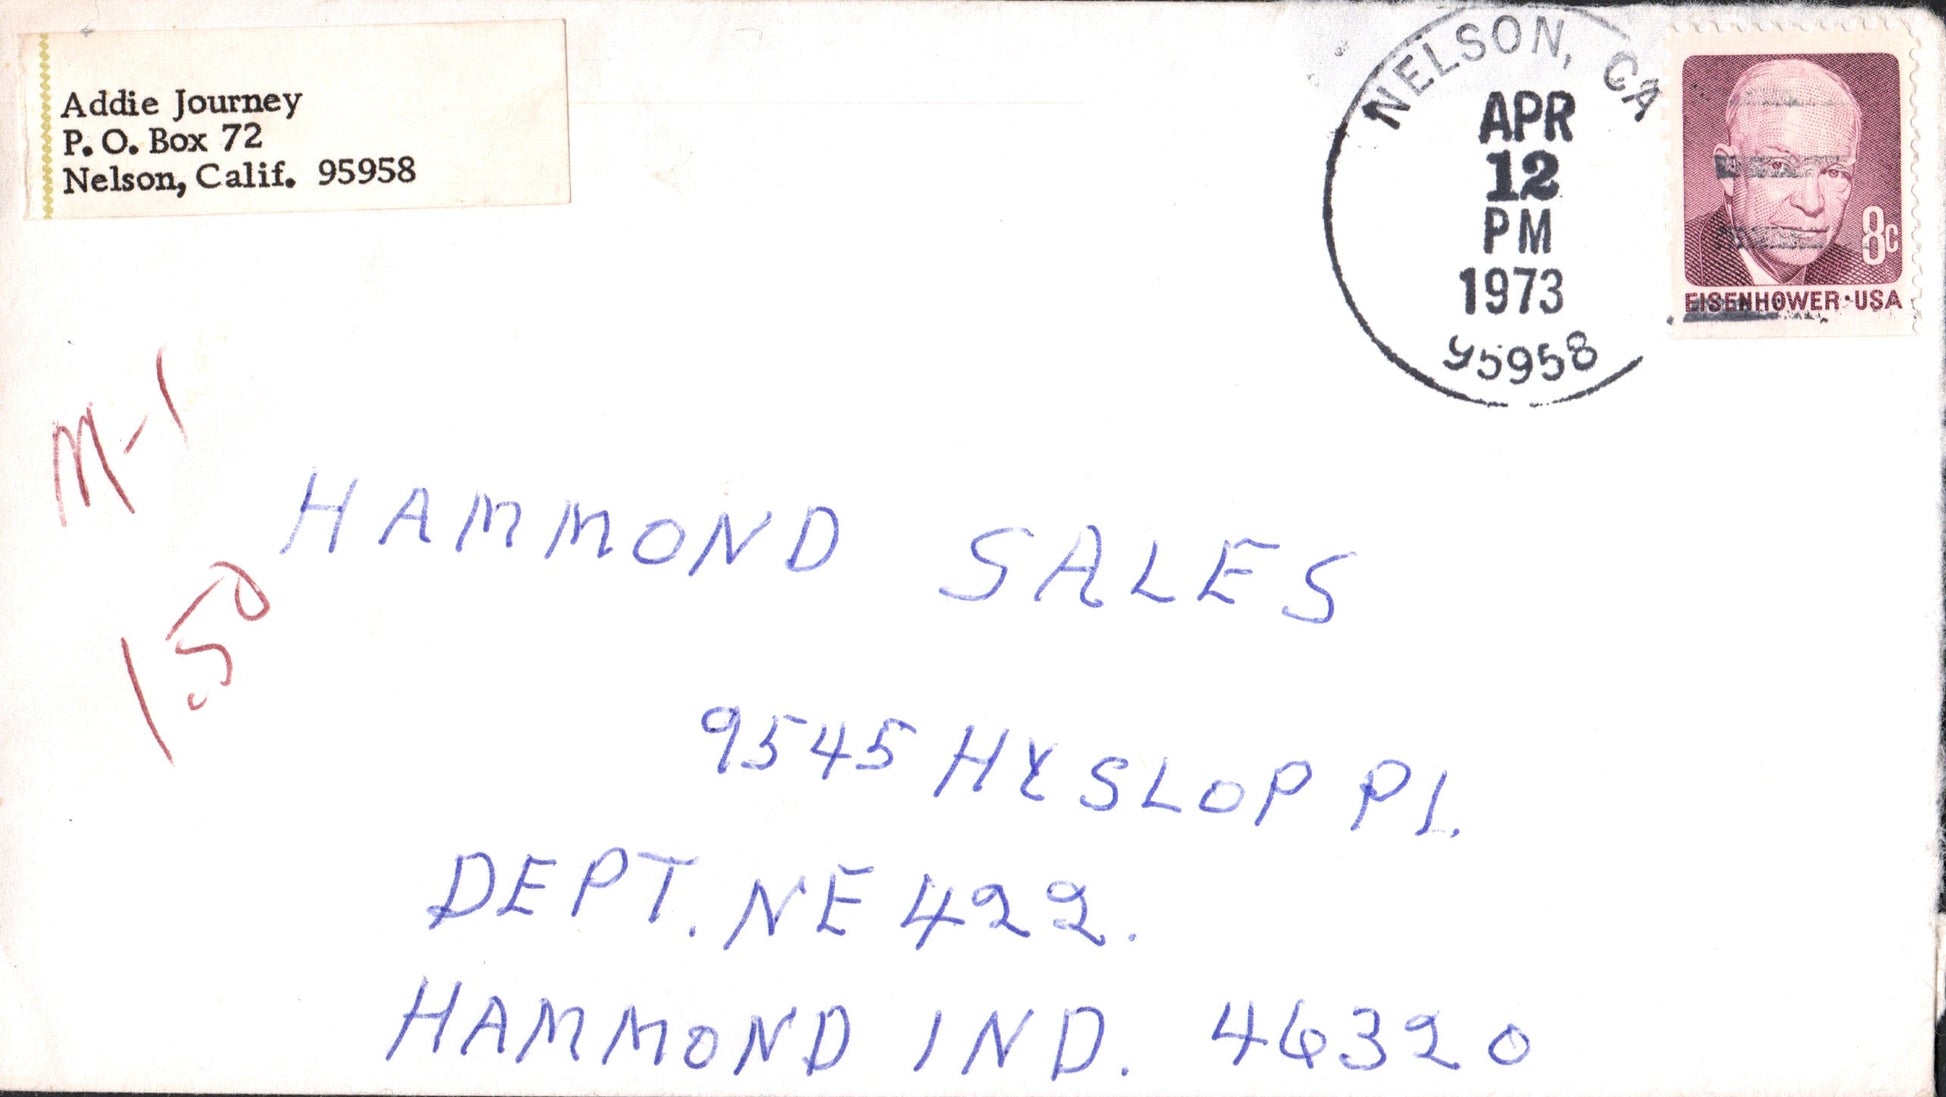 Addie Journey
P. O. Box 72
Nelson, Calif. 95958
NELSON, CA
APR
12
PM
1973
95958
8c
EISENHOWER·USA
M-1
1.50
HAMMOND SALES
9545 HYSLOP Pl.
DEPT. NE 422.
HAMMOND IND. 46320